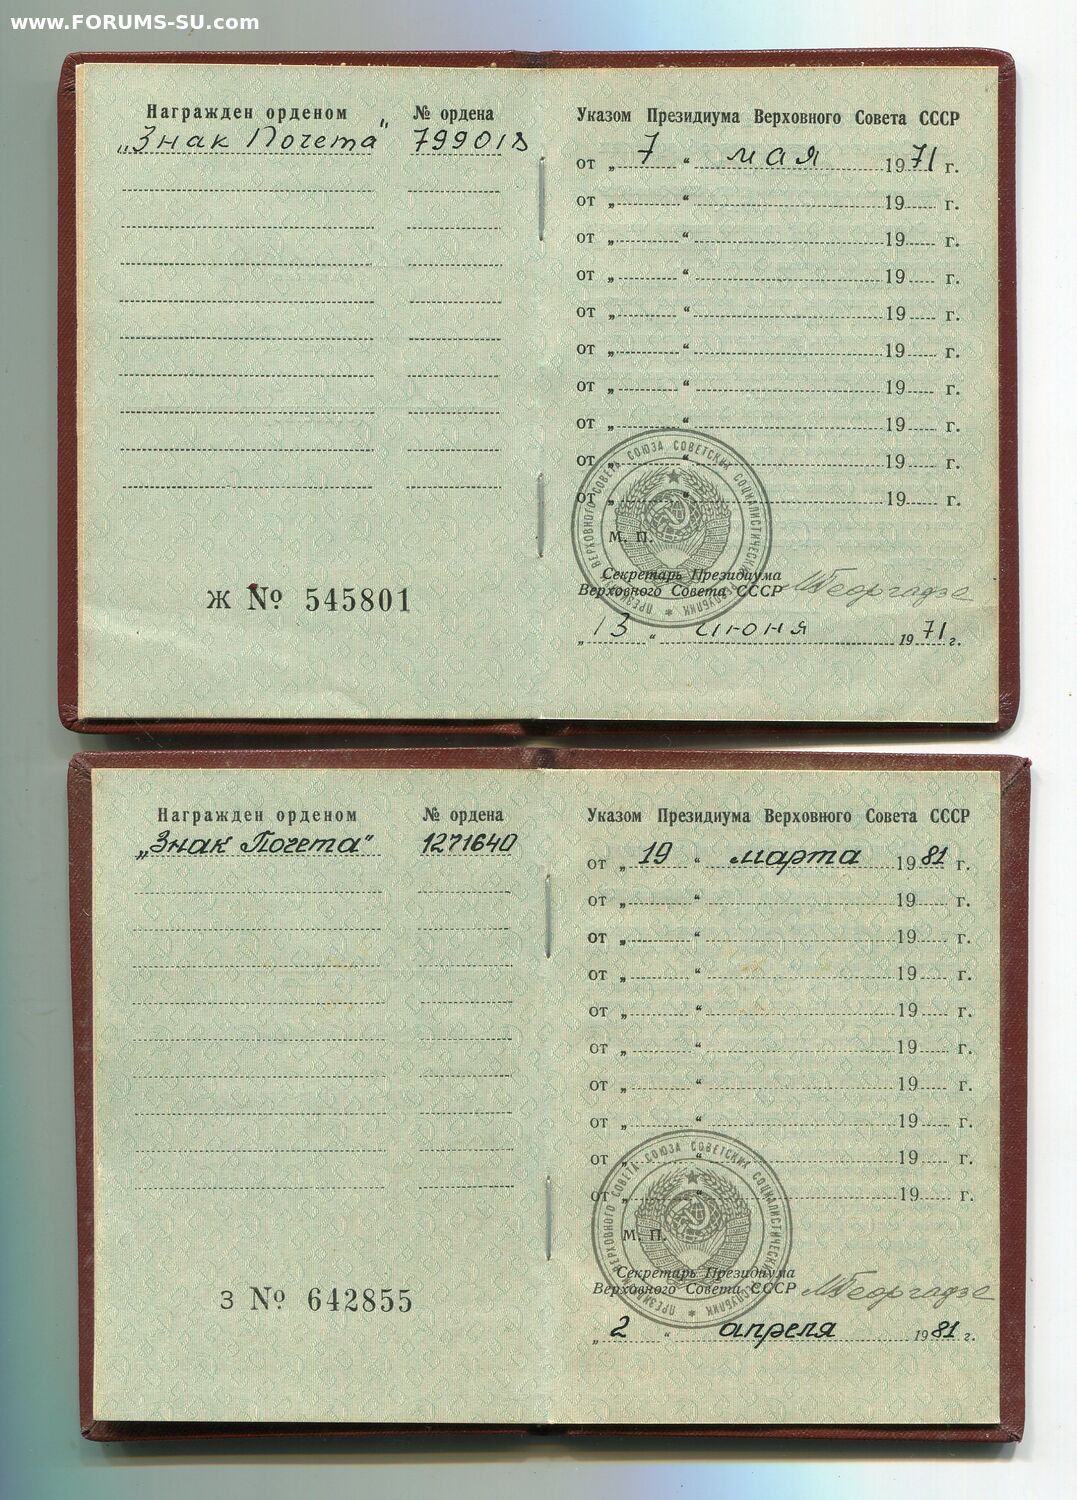 www.FORUMS-SU.com
Награжден орденом № ордена
„Знак Почета" 799018
Ж № 545801
Указом Президиума Верховного Совета СССР
от „ 7 “ мая 1971 г.
от „ “ 19 г.
от „ “ 19 г.
от „ “ 19 г.
от „ “ 19 г.
от „ “ 19 г.
от „ “ 19 г.
от „ “ 19 г.
от „ “ 19 г.
от „ “ 19 г.
ПРЕЗИДИУМ ВЕРХОВНОГО СОВЕТА СОЮЗА СОВЕТСКИХ СОЦИАЛИСТИЧЕСКИХ РЕСПУБЛИК
М. П.
Секретарь Президиума
Верховного Совета СССР МГеоргадзе
„ 13 “ июня 1971 г.
Награжден орденом № ордена
„Знак Почета" 1271640
З № 642855
Указом Президиума Верховного Совета СССР
от „ 19 “ марта 1981 г.
от „ “ 19 г.
от „ “ 19 г.
от „ “ 19 г.
от „ “ 19 г.
от „ “ 19 г.
от „ “ 19 г.
от „ “ 19 г.
от „ “ 19 г.
от „ “ 19 г.
ПРЕЗИДИУМ ВЕРХОВНОГО СОВЕТА СОЮЗА СОВЕТСКИХ СОЦИАЛИСТИЧЕСКИХ РЕСПУБЛИК
М. П.
Секретарь Президиума
Верховного Совета СССР МГеоргадзе
„ 2 “ апреля 1981 г.